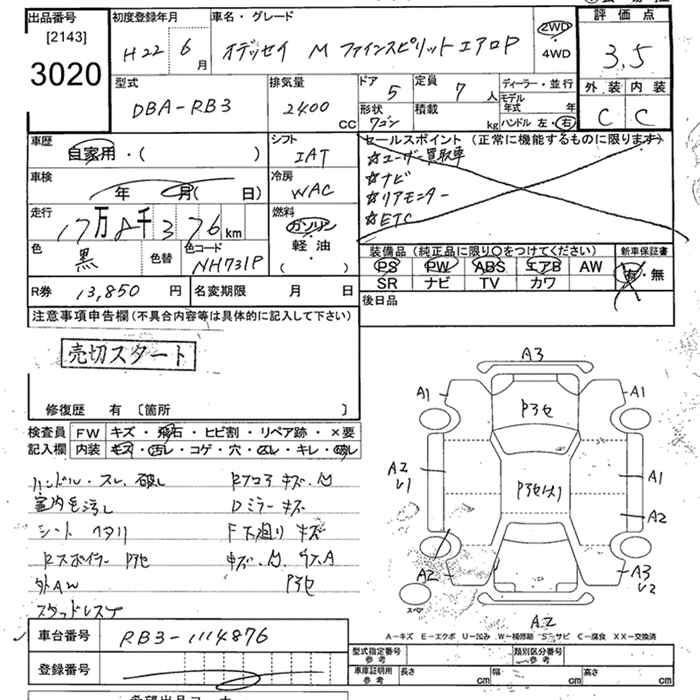 出品番号
[2143]
3020
初度登録年月
H22 6月
車名・グレード
オデッセイ M ファインスピリット エアロP
2WD
・
4WD
評価点
3.5
外装 内装
C C
型式
DBA-RB3
排気量
2400 CC
ドア 5
形状 ワゴン
定員 7 人
積載 kg
ディーラー・並行
モデル年式 年
ハンドル 左・右
車歴
自家用・( )
シフト
IAT
車検
年 月( 日)
冷房
WAC
走行
17万8千376km
燃料
ガソリン
軽油
・( )
色
黒
色替
色コード
NH731P
セールスポイント(正常に機能するものに限ります)
☆ユーザー買取車
☆ナビ
☆リアモニター
☆ETC
装備品(純正品に限り○をつけてください)
PS PW ABS エアB AW
SR ナビ TV カワ
新車保証書
有・無
R券 13,850 円
名変期限 月 日
後日品
注意事項申告欄(不具合内容等は具体的に記入して下さい)
売切スタート
修復歴 有 〔箇所 〕
検査員記入欄
FW キズ・飛石・ヒビ割・リペア跡・×要
内装 キズ・汚レ・コゲ・穴・スレ・キレ・破レ
ハンドル・スレ、破レ
室内色汚レ
シート ヘタリ
Rスポイラー Pアセ
外AW
スタッドレス
Dミラー キズ
F下廻り キズ
Pアセ
A3
A1
A1
Pアセ
A2
A1
A2
A2
A3
A2
スペア
A-キズ E-エクボ U-凹み W-補修跡 S-サビ C-腐食 XX-交換済
車台番号
RB3-1114876
登録番号
型式指定番号
参考
類別区分番号
参考
車庫証明用
参考
長さ cm
幅 cm
高さ cm
希望出品コーナー